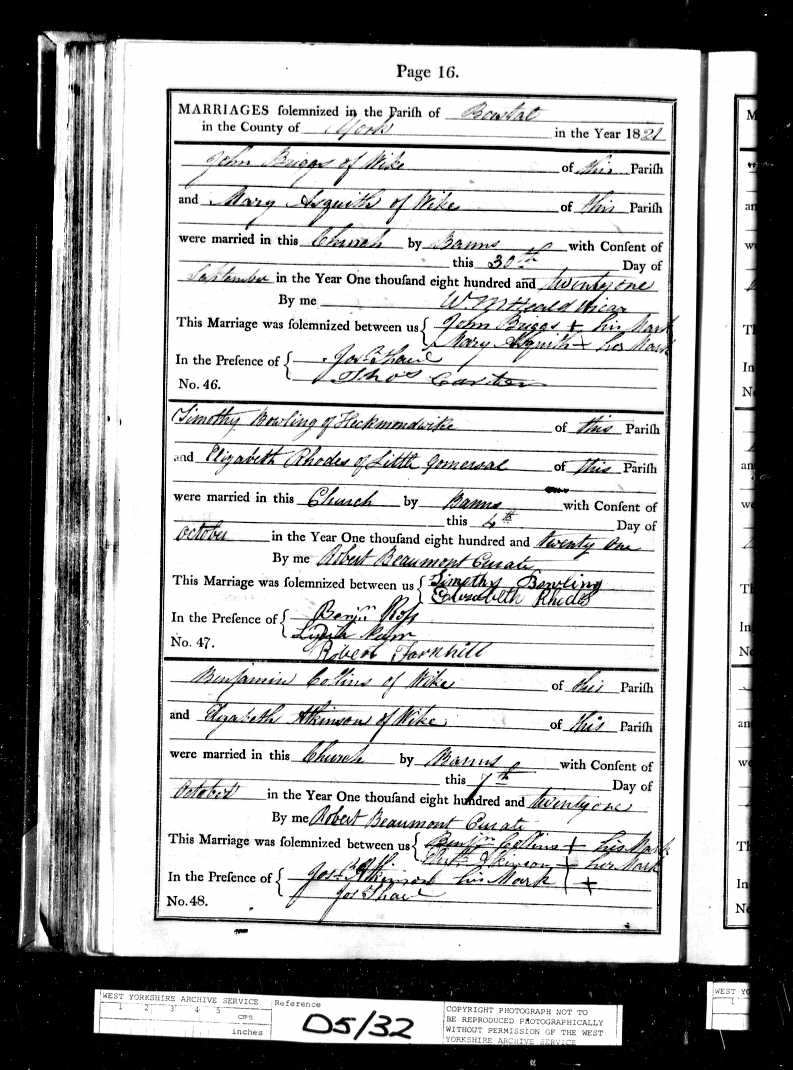 Page 16.
MARRIAGES solemnized in the Parish of Birstal
in the County of York in the Year 1821
John Briggs of Wike of this Parish
and Mary Asquith of Wike of this Parish
were married in this Church by Banns with Consent of
this 30th Day of
September in the Year One thousand eight hundred and twenty one
By me W M Heald Vicar
This Marriage was solemnized between us { John Briggs + his Mark
Mary Asquith + her Mark
In the Presence of {
Thos Carter
No. 46.
Timothy Bowling of Heckmondwike of this Parish
and Elizabeth Rhodes of Little Gomersal of this Parish
were married in this Church by Banns with Consent of
this 4th Day of
October in the Year One thousand eight hundred and twenty One
By me Robert Beaumont Curate
This Marriage was solemnized between us { Timothy Bowling
Elizabeth Rhodes
In the Presence of { Benjn
No. 47.
Robert Farnhill
Benjamin Collins of Wike of this Parish
and Elizabeth Atkinson of Wike of this Parish
were married in this Church by Banns with Consent of
this 7th Day of
October in the Year One thousand eight hundred and twenty one
By me Robert Beaumont Curate
This Marriage was solemnized between us { Benjn Collins + his Mark
Elizth Atkinson + her Mark
In the Presence of { Josh Atkinson his Mark +
No. 48.
WEST YORKSHIRE ARCHIVE SERVICE
1 2 3 4 5 cms
inches
Reference
D5/32
COPYRIGHT PHOTOGRAPH NOT TO
BE REPRODUCED PHOTOGRAPHICALLY
WITHOUT PERMISSION OF THE WEST
YORKSHIRE ARCHIVE SERVICE
WEST YO